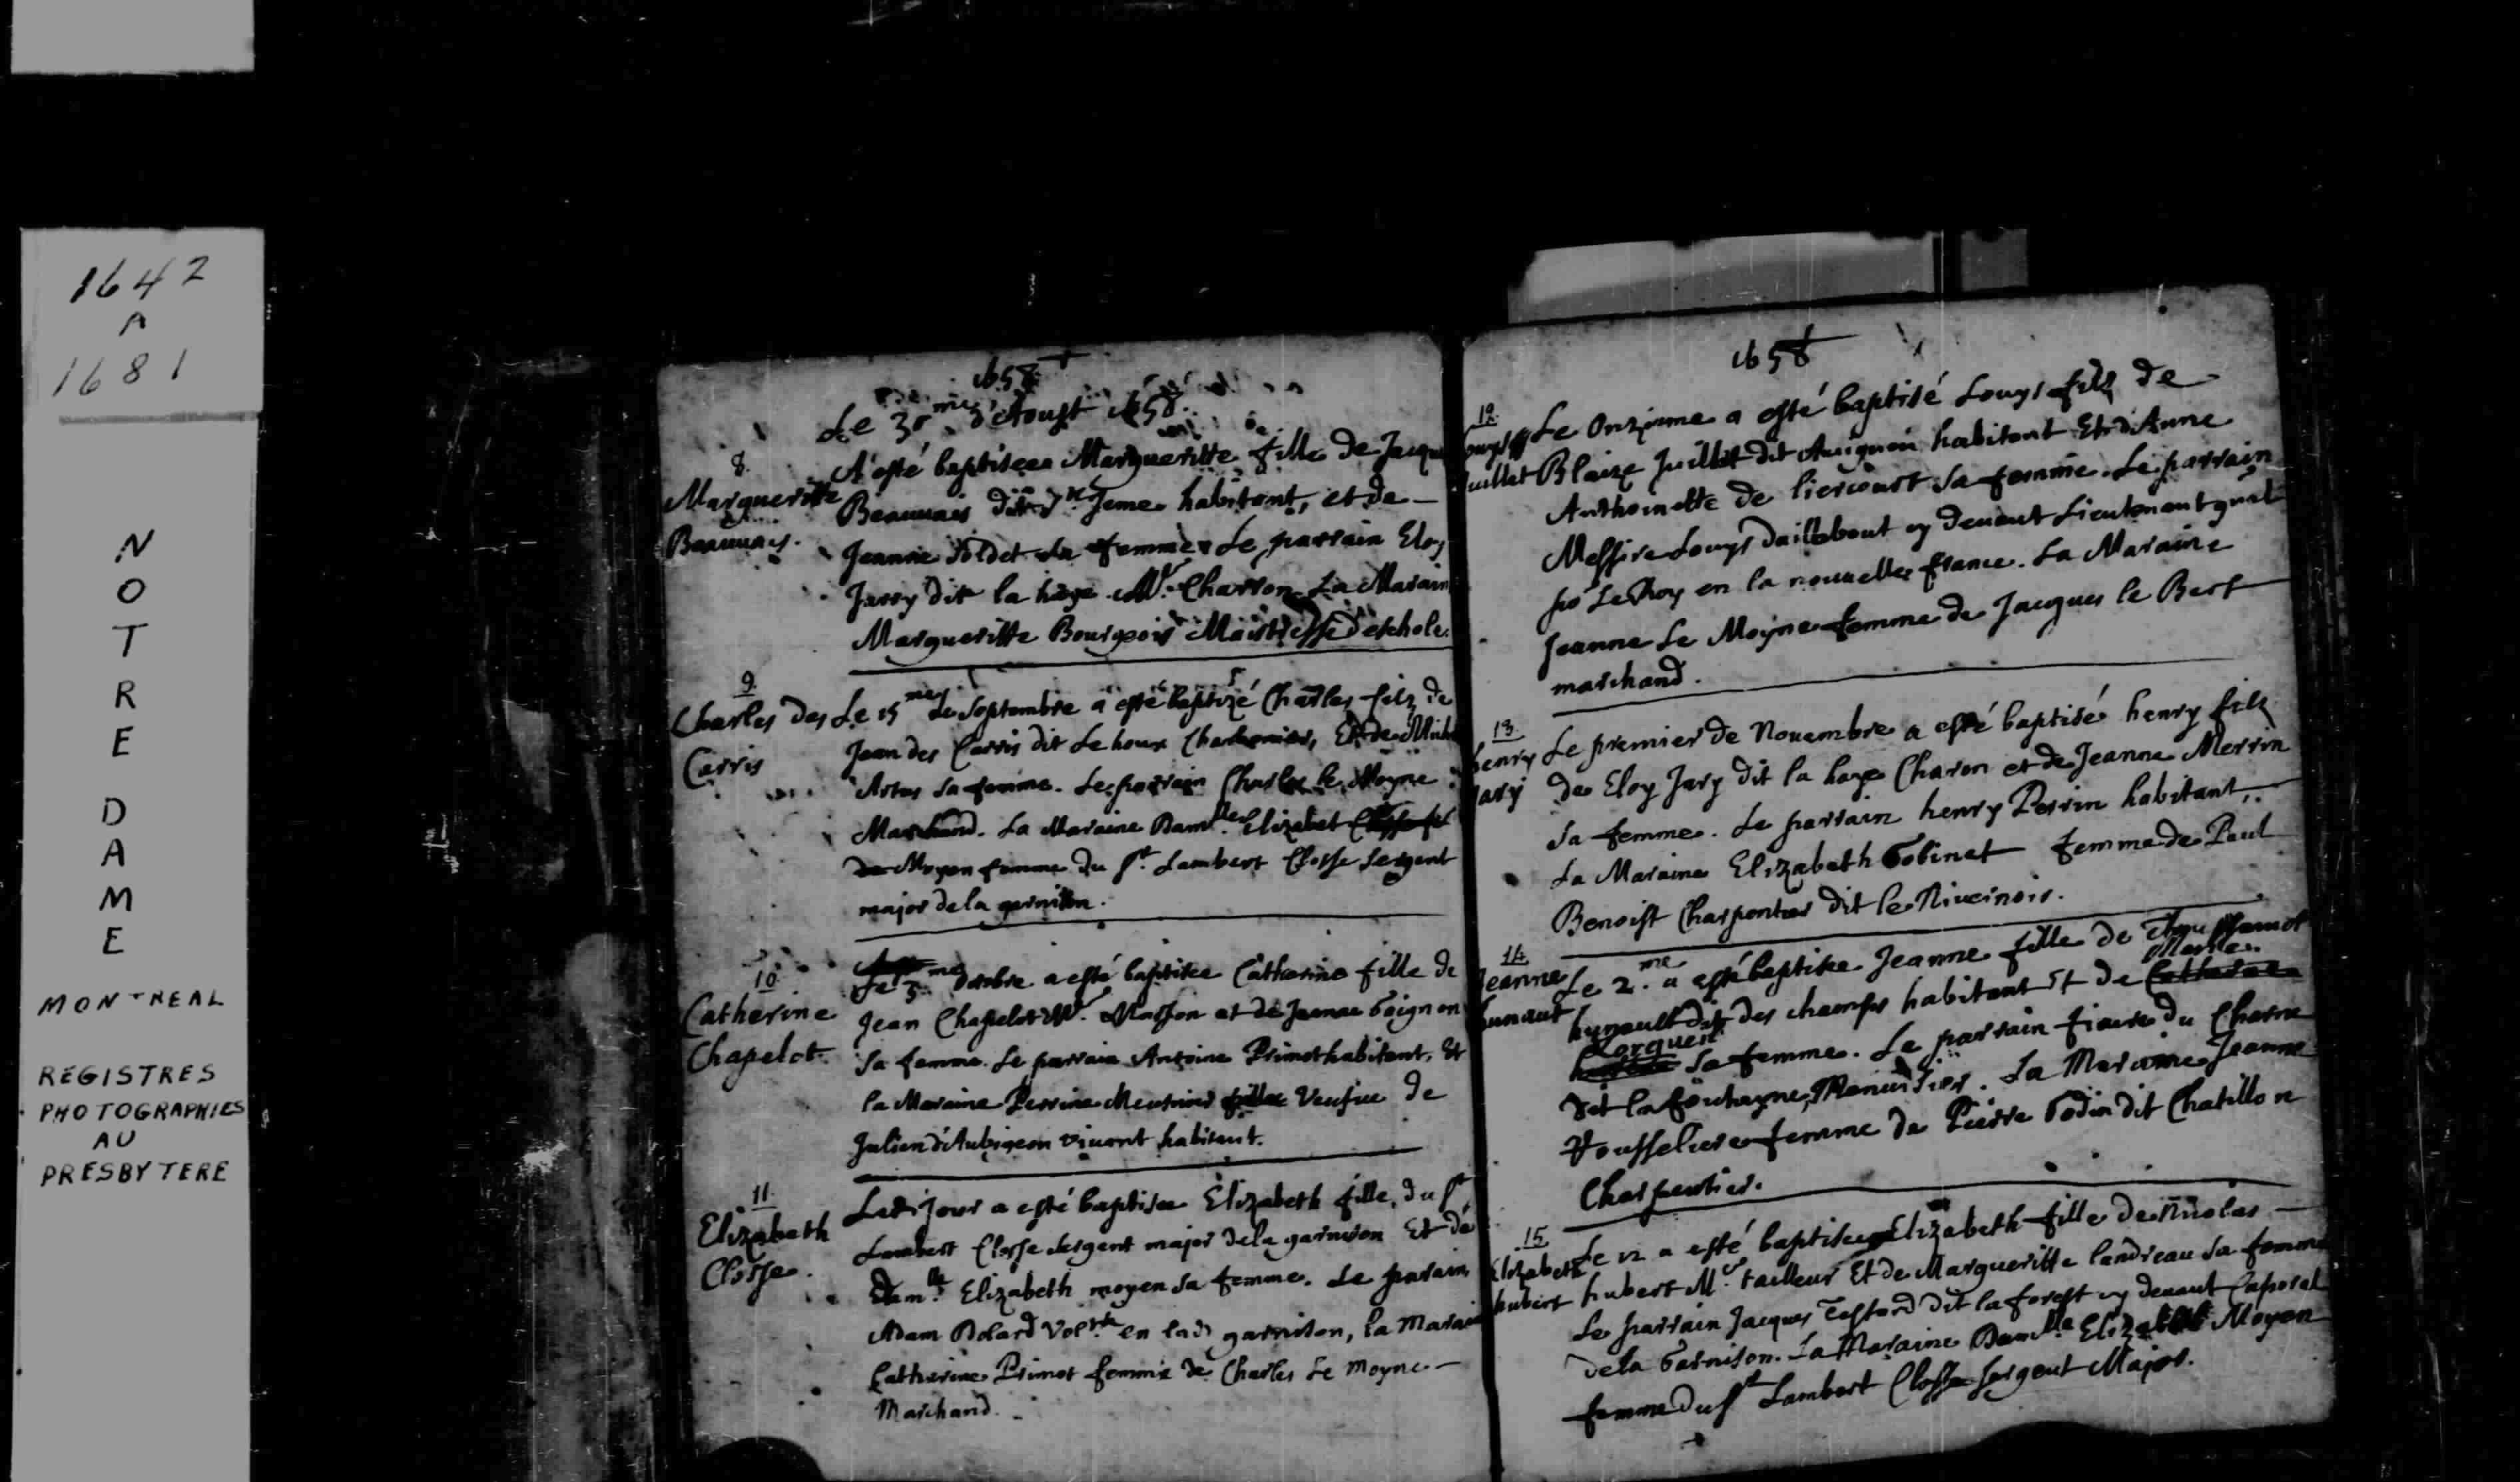 1642
A
1681
NOTRE DAME
MONTREAL
REGISTRES
PHOTOGRAPHIES
AU
PRESBYTERE
1658
Le 30me d'Aoust 1658.
8.
Margueritte
Beauuais.
A esté baptisee Margueritte fille de Jacqu
Beauuais dit Jeme habitant, et de
Jeanne Soldet sa femme Le parrain Eloy
Jarry dit la haye Mr. Charron La Marain
Margueritte Bourgeois Maistresse d'eschole.
9.
Charles des
Carris
Le 15me de Septembre a esté baptizé Charles filz de
Jean des Carris dit Le houx Charbonnier, Et de Mich
Artus sa femme. Le parrain Charles le Moyne
Marchand. La Maraine Damlle Elizabet
Moyen femme du Sr. Lambert Closse Sergent
major dela garnison.
10.
Catherine
Chapelot.
Le 3me Octobre a esté baptisee Catherine fille de
Jean Chapelot Mr. Masson et de Jeanne Goignon
sa femme. Le parrain Antoine Primot habitant, Et
la Maraine Perrine Meusnier Veufue de
Julien d'Aubigeon viuant habitant.
11.
Elizabeth
Closse.
Led. jour a esté baptisee Elizabeth fille du Sr
Lambert Closse sergent major dela garnison Et de
Damlle. Elizabeth moyen sa femme. Le parain
Adam Dolard Volre en lad. garnison, la Marai
Catherine Primot femme de Charles Le Moyne
Marchand.
1658
12.
Louys
Juillet
Le Onzieme a esté baptisé Louys filz de
Blaize Juillet dit Auignon habitant Et d'Anne
Anthoinette de liercourt sa femme. Le parrain
Messire Louys Dailbout cy deuant Lieutenant gnal
po Le Roy en la nouuelle france. La Maraine
Jeanne Le Moyne femme de Jacques le Bert
marchand.
13.
henry
Jary
Le premier de Nouembre a esté baptisé henry filz
de Eloy Jary dit la haye Charon et de Jeanne Merrin
sa femme. Le parrain henry Perrin habitant,
La Maraine Elizabeth Gobinet femme de Paul
Benoist Charpentier dit le Niuernois.
14.
Jeanne
hunaut
Le 2.me a esté baptisee Jeanne fille de Toussainct
Marie
hunault dit des champs habitant Et de
Lorgueil
sa femme. Le parrain fiacre du Charne
dit la fontayne, Menuisier. La Maraine Jeanne
Rousseliere femme de Pierre Godin dit Chatillon
Charpentier.
15.
Elizabeth
hubert
Le 12 a esté baptisee Elizabeth fille de Nicolas
hubert Mr. tailleur Et de Margueritte landreau sa femme
Le parrain Jacques Testard dit la forest cy deuant Caporal
dela Garnison. La Maraine Damlle. Elizabet Moyen
femme du Sr Lambert Closse sergent Major.